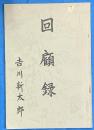 回顧録
吉川新太郎